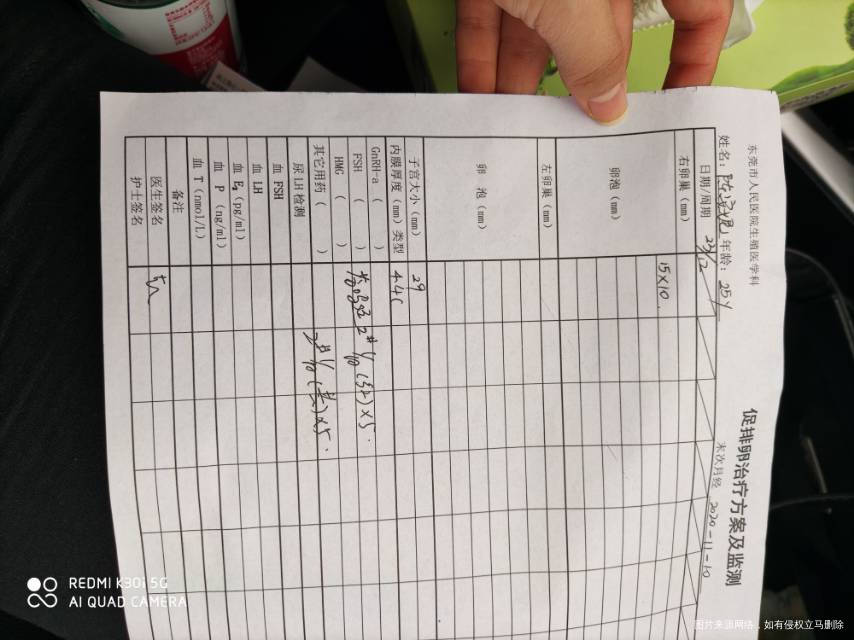 东莞市人民医院生殖医学科
促排卵治疗方案及监测
姓名: 年龄: 25岁 末次月经 2020-11-10
日期/周期 23/12
右卵巢 (mm) 15×10
卵泡 (mm)
左卵巢 (mm)
卵 泡 (mm)
子宫大小 (mm) 29
内膜厚度 (mm) 类型 4.4C
GnRH-a ( )
FSH ( )
HMG ( )
其它用药 ( )
尿 LH 检测
血 FSH
血 LH
血 E₂ (pg/ml)
血 P (ng/ml)
血 T (nmol/L)
备注
医生签名
护士签名
REDMI K30i 5G
AI QUAD CAMERA
图片来源网络,如有侵权立马删除